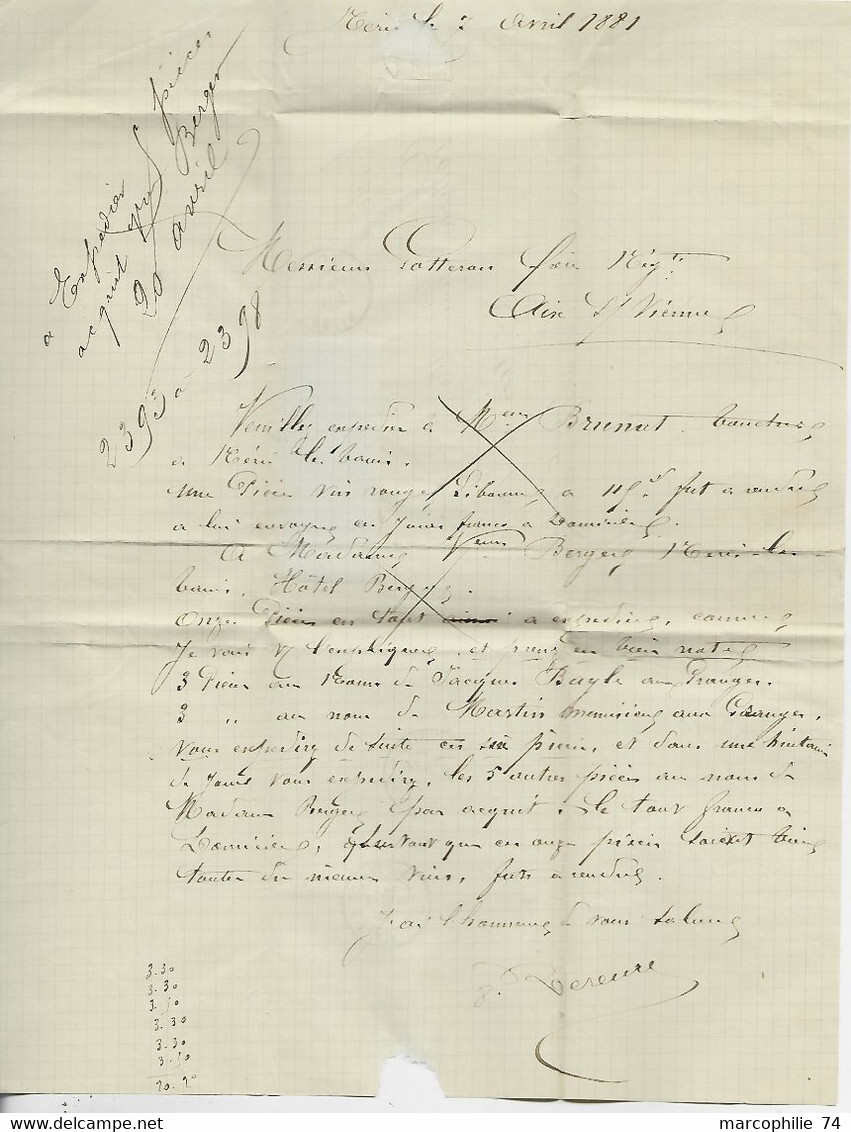 Avril 1881
a Expedier
acquit pièces
Berger
20 avril
2393 a 2398
Messieurs frère
Aixe s/ Vienne
Veuillez expedier a Brunet
a Néris les bains.
une Pièce vin rouge a 115 fut a rendre
a lui envoyer en jours franco a Domicile.
A Madame Veuve Berger Néris-les-
bains. Hôtel Berger.
Onze Pièces en tout a expedier, comme
Je vais l'expliquer, et prenez en bien note
3 Pièces au Nom de Jacques Bayle aux Granges.
3 " au nom de Martin menuisier aux Granges,
Vous expedirez de suite ces six pièces, et dans une huitaine
de jours vous expedirez, les 5 autres pièces au nom de
Madame Berger par acquit. le tout franco a
Domicile, que ces onze pièces soient bien
toutes du même vin, futs a rendre.
J'ai l'honneur de vous saluer
3.30
3.30
3.50
3.30
3.30
3.50
20.20
marcophilie 74